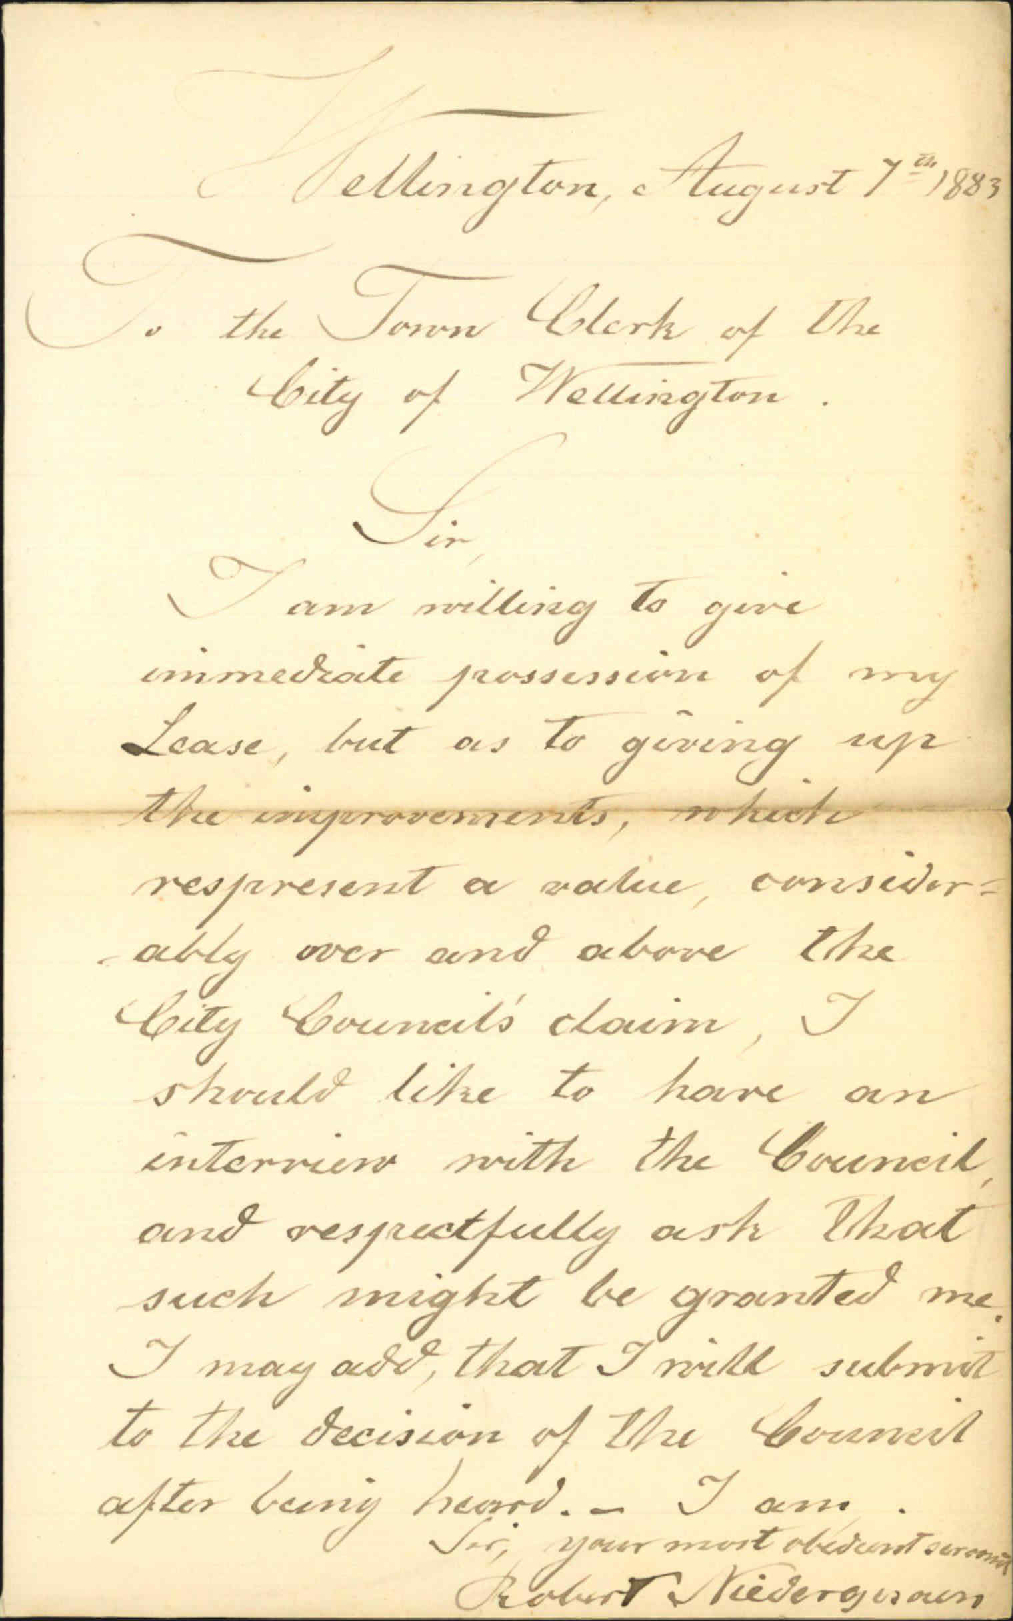 Wellington, August 7th 1883
To the Town Clerk of the
City of Wellington.
Sir,
I am willing to give
immediate possession of my
Lease, but as to giving up
the improvements, which
respresent a value, consider=
-ably over and above the
City Council's claim, I
should like to have an
interview with the Council,
and respectfully ask that
such might be granted me.
I may add, that I will submit
to the decision of the Council
after being heard. – I am,
Sir, your most obedient servant
Robert